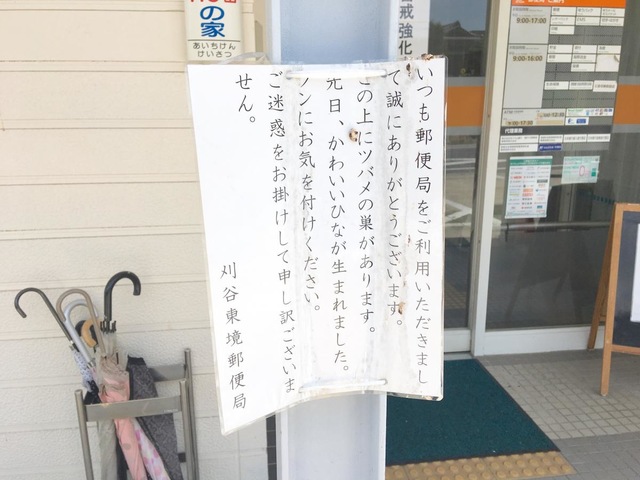 いつも郵便局をご利用いただきまし
て誠にありがとうございます。
この上にツバメの巣があります。
先日、かわいいひなが生まれました。
フンにお気を付けください。
ご迷惑をお掛けして申し訳ございま
せん。
刈谷東境郵便局
の家
あいちけん
けいさつ
戒強化
9:00-17:00
9:00-16:00